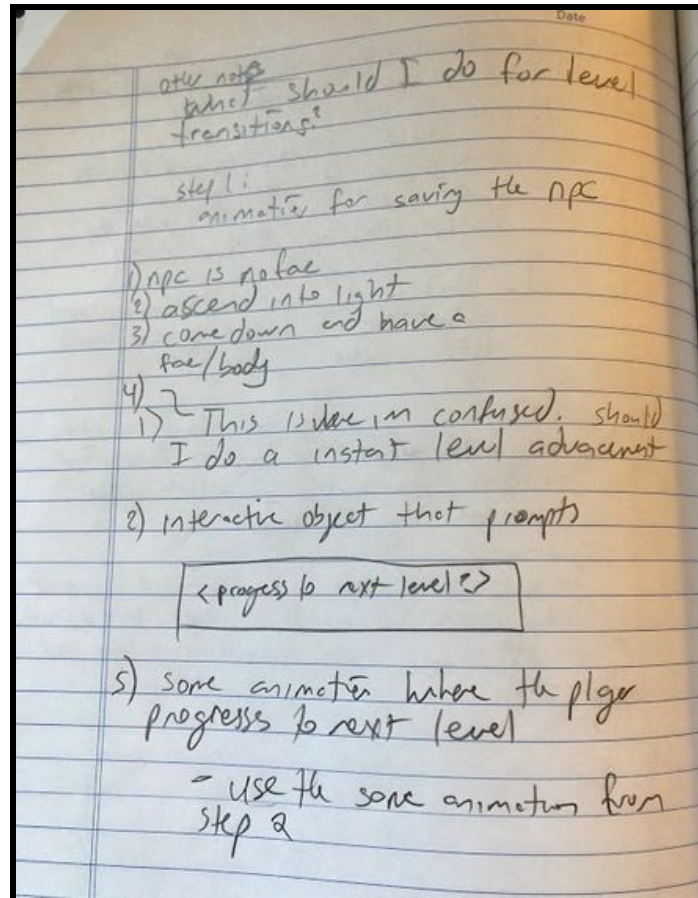 Date
other notes
what should I do for level
transitions?
step 1:
animation for saving the npc
1) npc is no fae
2) ascend into light
3) come down and have a
fae/body
4)
1) This is where im confused. should
I do a instant level advacement
2) interactive object that prompts
<progess to next level?>
5) some animation where the player
progresss to next level
- use the same animation from
step 2